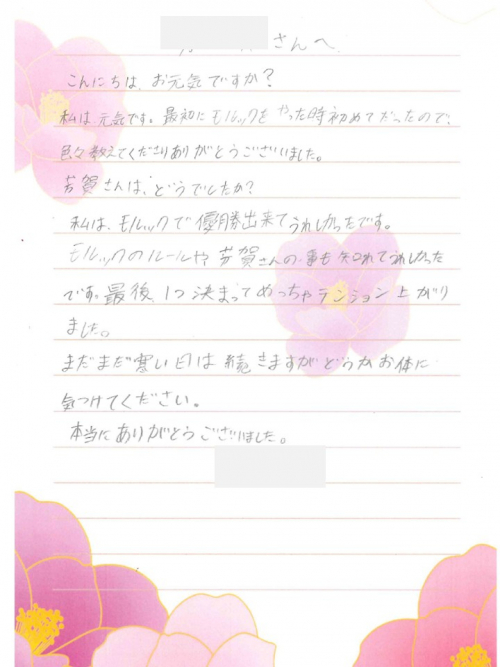 さんへ
こんにちは、お元気ですか？
私は元気です。最初にモルックをやった時初めてだったので、
色々教えてくださりありがとうございました。
芳賀さんは、どうでしたか？
私は、モルックで優勝出来てうれしかったです。
モルックのルールや芳賀さんの事も知れてうれしかった
です。最後1つ決まってめっちゃテンション上がり
ました。
まだまだ寒い日は続きますがどうかお体に
気つけてください。
本当にありがとうございました。